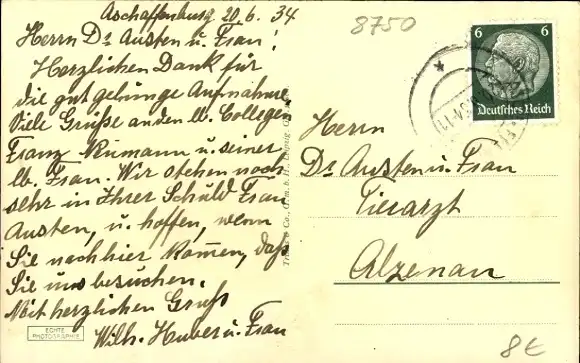 Aschaffenburg 20.6.34
Herrn Dr Austen u. Frau!
Herzlichen Dank für
die gut gelunge Aufnahme
Viele Grüße an den lb. Collegen
Franz Neumann u. seiner
lb. Frau. Wir stehen noch
sehr in Ihrer Schuld Frau
Austen, u. hoffen, wenn
Sie nach hier kommen, daß
Sie uns besuchen.
Mit herzlichen Gruß
Wilh. Huber u. Frau
ECHTE
PHOTOGRAPHIE
& Co., G. m. b. H., Leipzig
8750
6 6
Deutsches Reich
Herrn
Dr Austen u. Frau
Tierarzt
Alzenau
8€